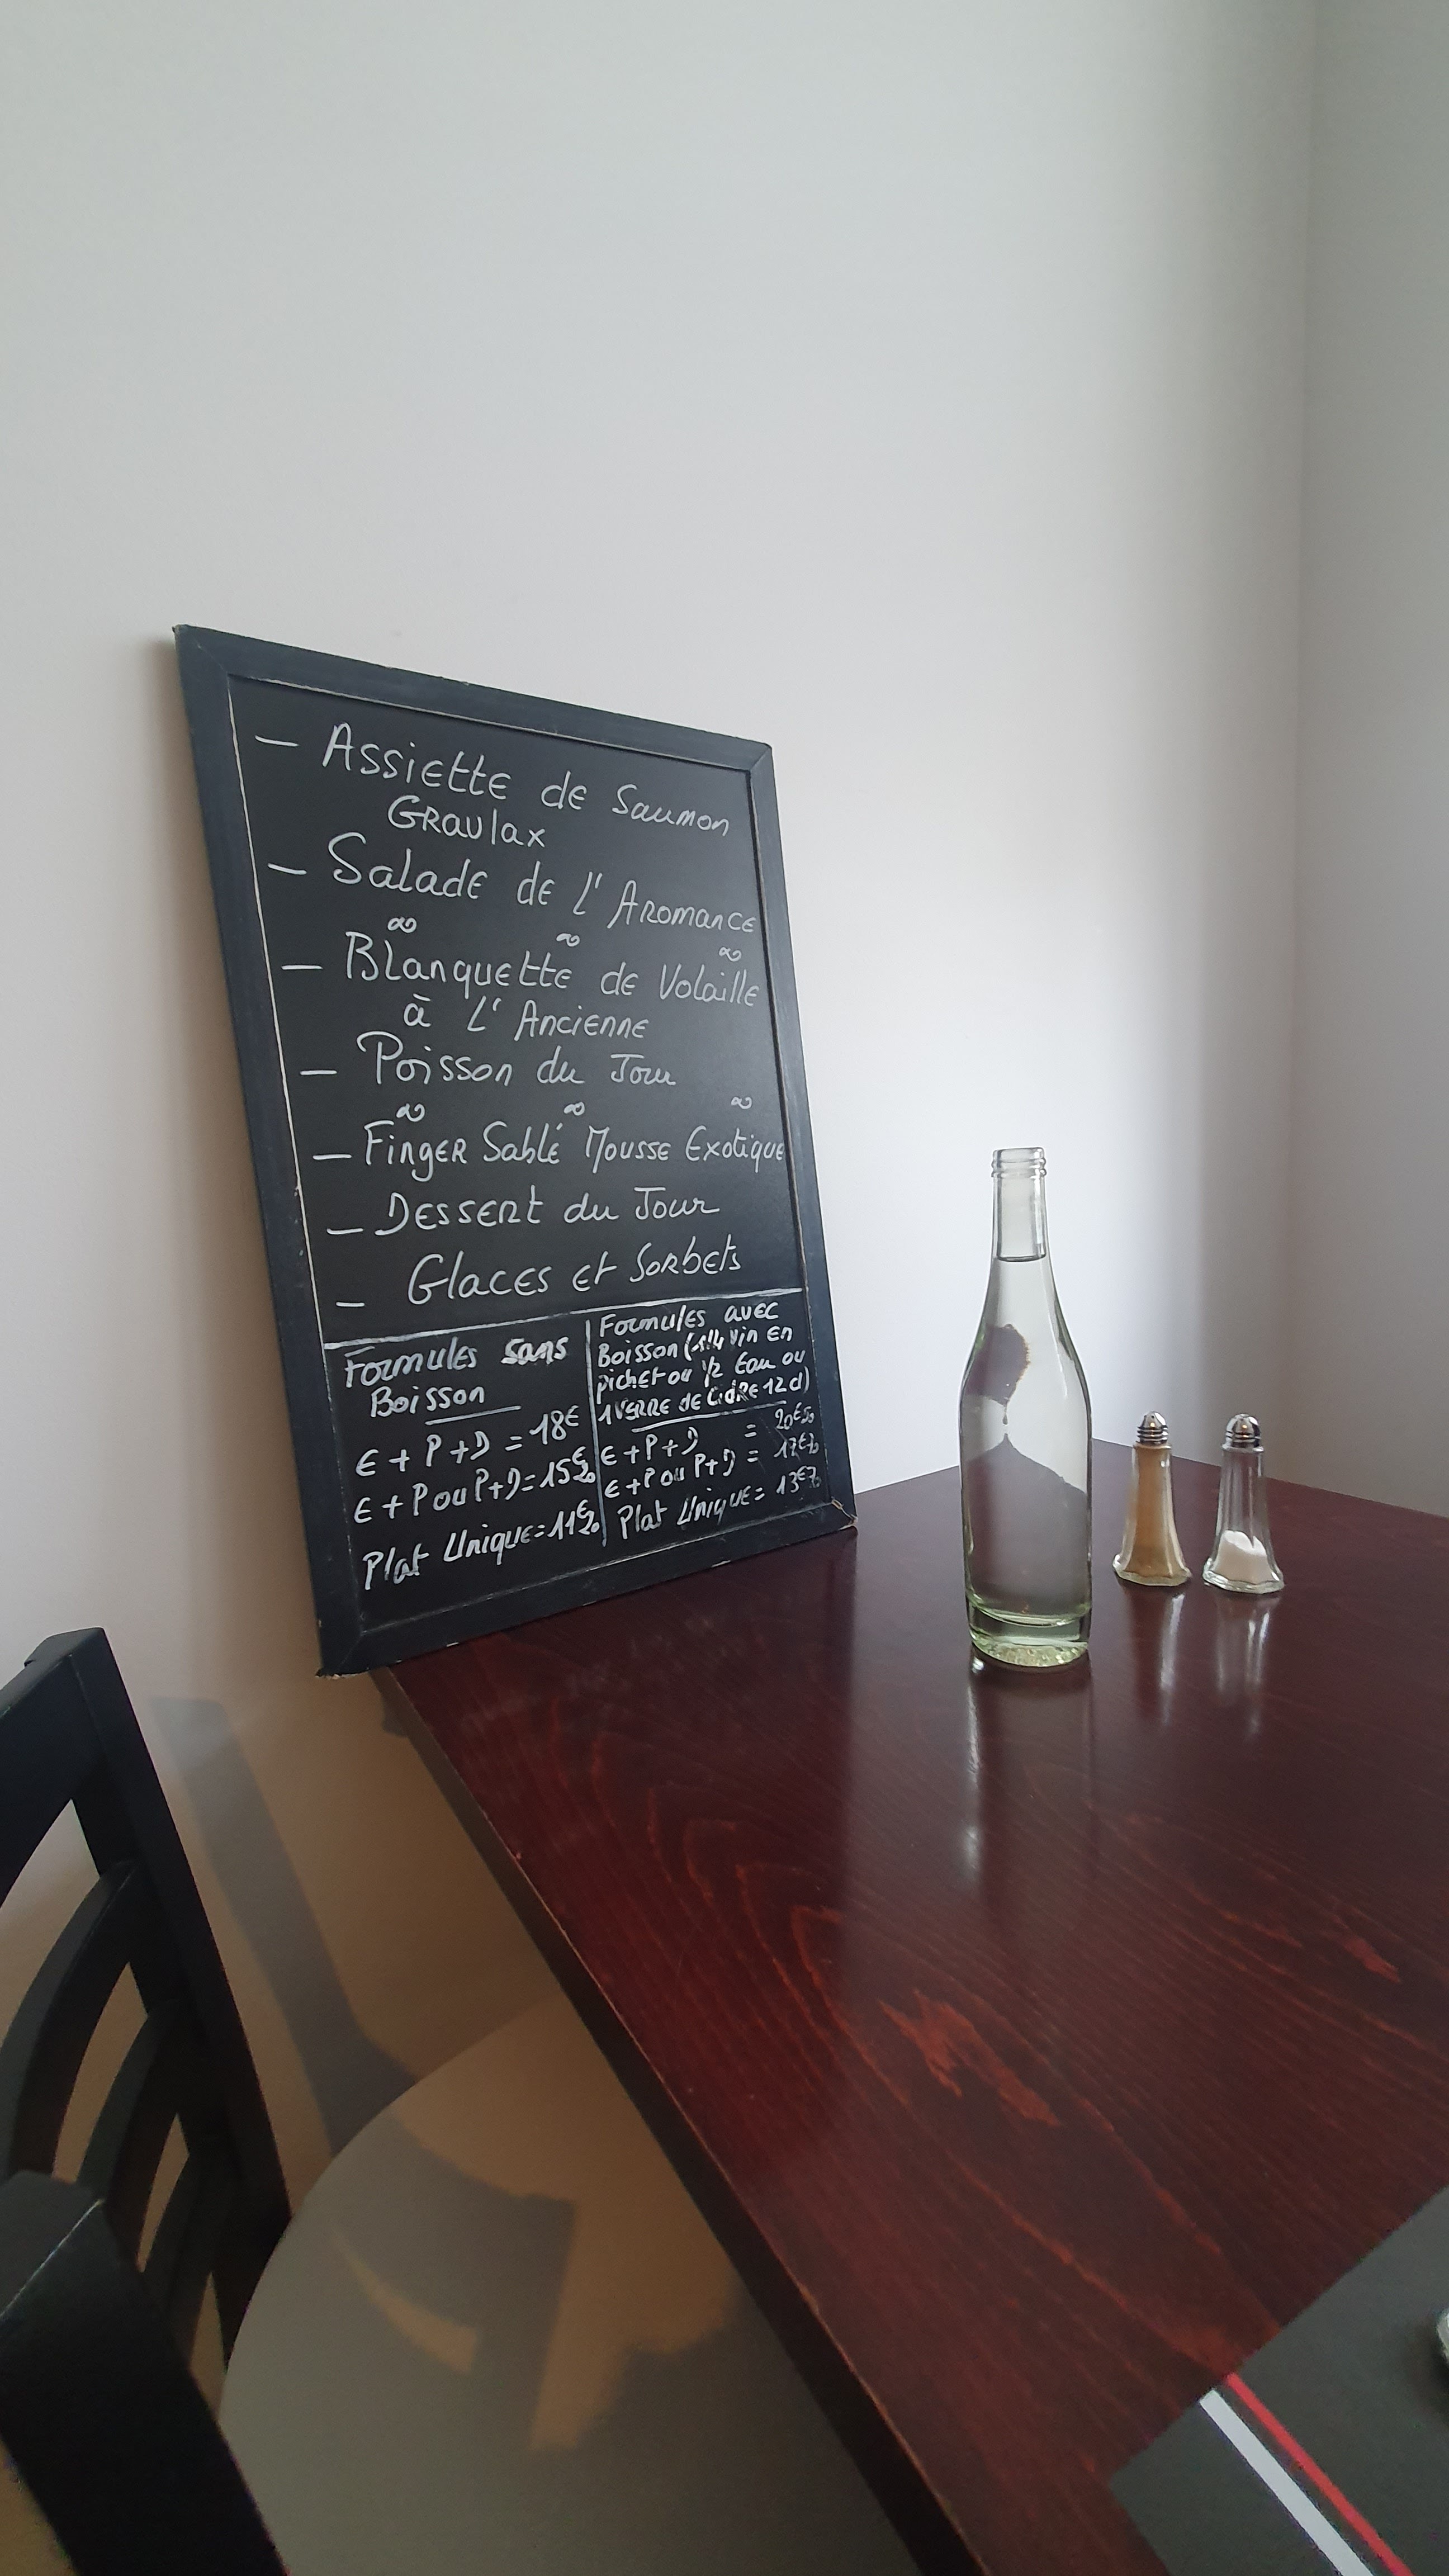 – Assiette de Saumon
Gravlax
– Salade de l'Aromance
∞ ∞ ∞
– Blanquette de Volaille
à l'Ancienne
– Poisson du Jour
∞ ∞ ∞
– Finger Sablé Mousse Exotique
– Dessert du Jour
– Glaces et Sorbets
Formules sans
Boisson
E + P + D = 18€
E + P ou P+D = 15€20
Plat Unique = 11€20
Formules avec
Boisson (1/4 Vin en
pichet ou 1/2 Eau ou
1 Verre de Cidre 12cl)
E + P + D = 20€50
E + P ou P+D = 17€70
Plat Unique = 13€70